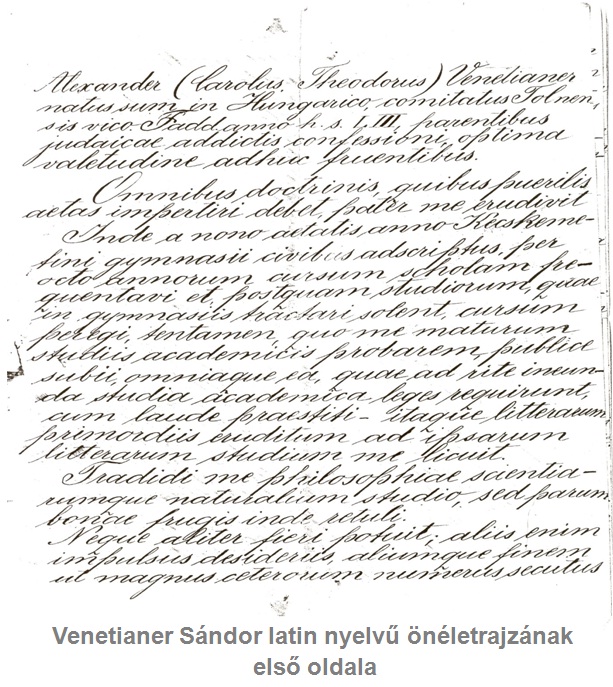 Alexander (Carolus, Theodorus) Venetianer
natus sum in Hungarico, comitatus Tolnen,
sis vico. Fadd anno h. s. I, III, parentibus
judaicae addictis confessioni, optima
valetudine adhuc fruentibus.
Omnibus doctrinis, quibus puerilis
aetas impertiri debet, pater me erudivit
Inde a nono aetatis anno Kecskeme-
tini gymnasii civibus adscriptus, per
octo annorum cursum scholam fre-
quentavi et, postquam studiorum, quae
in gymnasiis tractari solent, cursum
peregi, tentamen, quo me maturum
studiis academicis probarem, publice
subii, omniaque ea, quae ad rite ineun-
da studia academica leges requirunt,
cum laude praestiti - itaque litterarum
primordiis eruditum ad ipsarum
litterarum studium me licuit.
Tradidi me philosophiae scientia-
rumque naturalium studio, sed parum
bonae frugis inde retuli.
Neque aliter fieri potuit; aliis enim
impulsus desideriis, aliumque finem
ut magnus ceterorum numerus secutus
Venetianer Sándor latin nyelvű önéletrajzának
első oldala